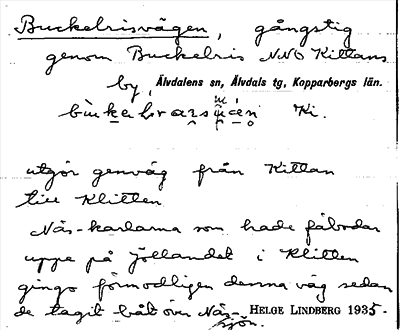 Buckelrisvägen, gångstig
genom Buckelris NNO Kittans
by, Älvdalens sn, Älvdals tg, Kopparbergs län.
Ki.
utgör genväg från Kittan
till Klitten
Näs-karlarna som hade fäbodar
uppe på Jöllandet i Klitten
gingo förmodligen denna väg sedan
de tagit båt över Näs- HELGE LINDBERG 1935-
sjön.